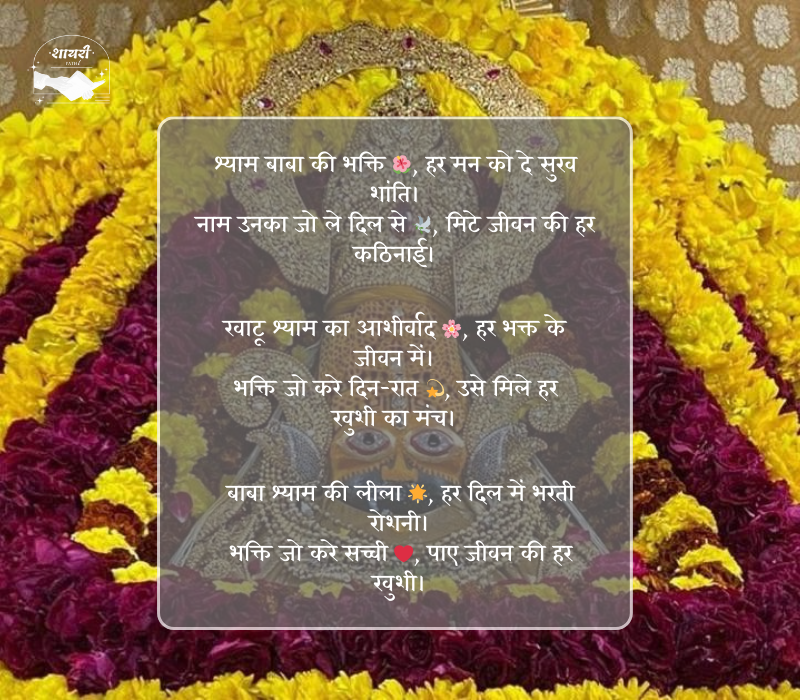 शायरी
श्याम बाबा की भक्ति 🌺, हर मन को दे सुख
शांति।
नाम उनका जो ले दिल से 🕊️, मिटे जीवन की हर
कठिनाई।
खाटू श्याम का आशीर्वाद 🌸, हर भक्त के
जीवन में।
भक्ति जो करे दिन-रात 💫, उसे मिले हर
खुशी का मंच।
बाबा श्याम की लीला 🌟, हर दिल में भरती
रोशनी।
भक्ति जो करे सच्ची ❤️, पाए जीवन की हर
खुशी।